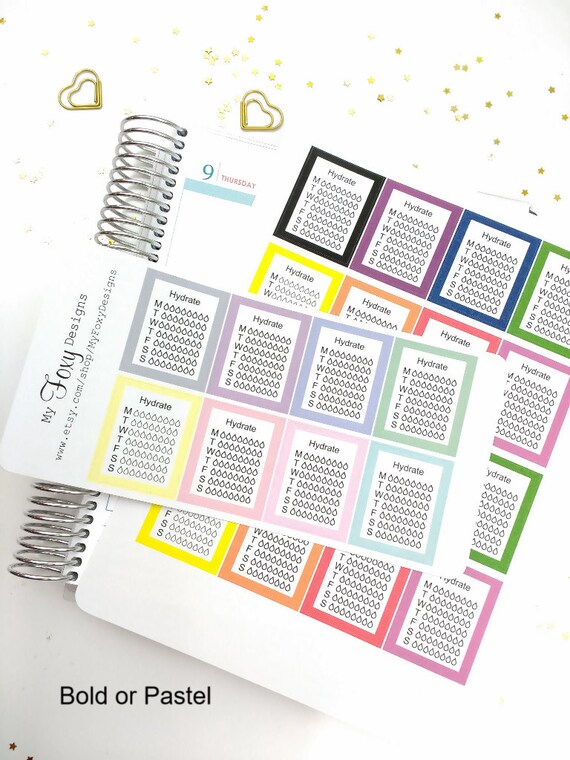 9 THURSDAY
Hydrate
M
T
W
T
F
S
S
Hydrate
M
T
W
T
F
S
S
Hydrate
M
T
W
T
F
S
S
Hydrate
M
Hydrate
M
Hydrate
My Foxy Designs
www.etsy.com/shop/MyFoxyDesigns
Hydrate
M
T
W
T
F
S
S
Hydrate
M
T
W
T
F
S
S
Hydrate
M
T
W
T
F
S
S
Hydrate
M
T
W
T
F
S
S
Hydrate
M
T
W
T
F
S
S
Hydrate
M
T
W
T
F
S
S
Hydrate
M
T
W
T
F
S
S
Hydrate
M
T
W
T
F
S
S
S
F
S
S
T
F
S
S
M
T
W
T
F
S
S
Bold or Pastel